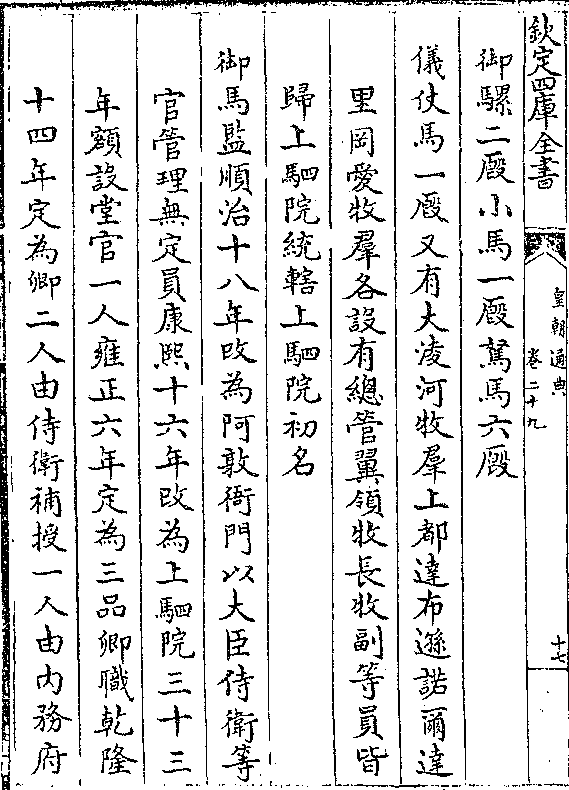 欽定四庫全書
皇朝通典
卷二十九
十七
御騾二廄小馬一廄駑馬六廄
儀仗馬一廄又有大凌河牧羣上都達布遜諾爾達
里岡愛牧羣各設有總管翼領牧長牧副等員皆
歸上駟院統轄上駟院初名
御馬監順治十八年改為阿敦衙門以大臣侍衛等
官管理無定員康熙十六年改為上駟院三十三
年額設堂官一人雍正六年定為三品卿職乾隆
十四年定為卿二人由侍衛補授一人由内務府